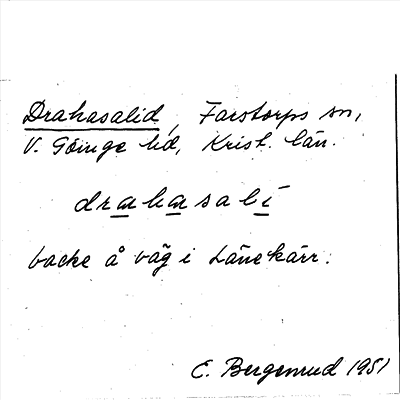 Drakasalid, Farstorps sn,
V. Göinge hd, Krist. län.
drakasalí
backe å väg i Länekärr.
E. Bergenrud 1951